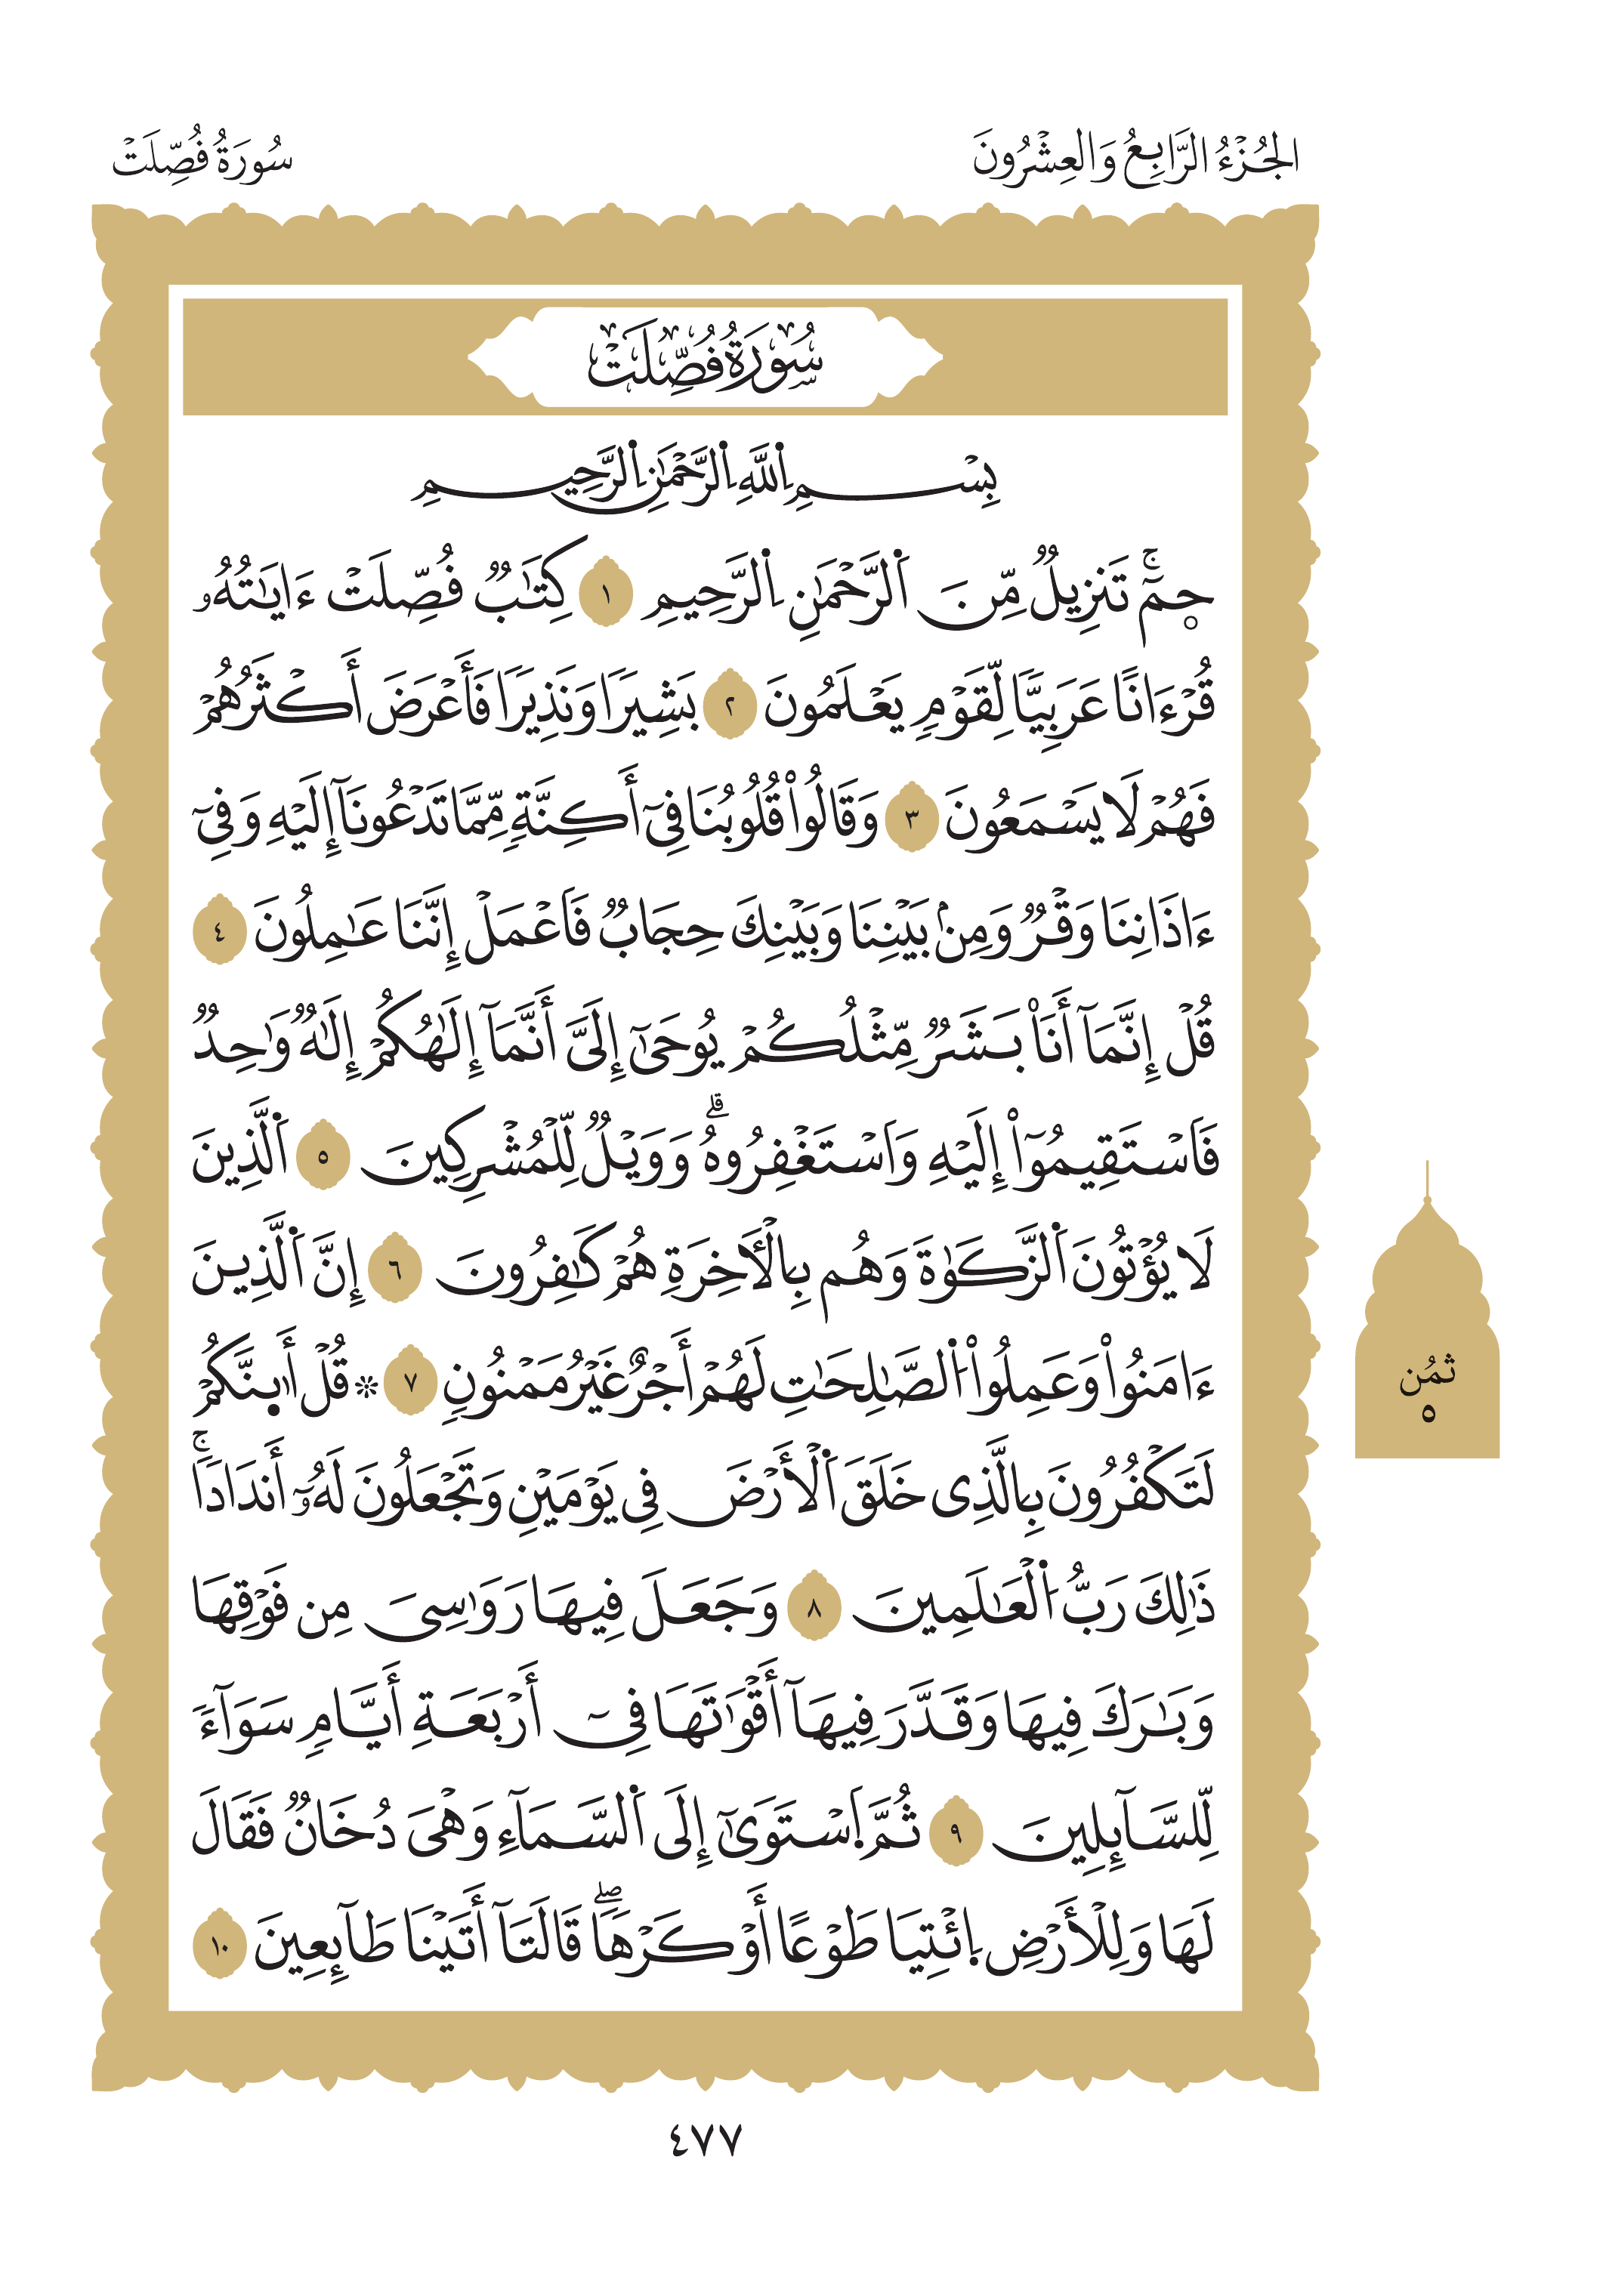 الجُزْءُ الرَّابِعُ وَالعِشْرُونَ
سُورَةُ فُصِّلَتْ
سُورَةُ فُصِّلَتْ
بِسْمِ اِ۬للَّهِ اِ۬لرَّحْمَٰنِ اِ۬لرَّحِيمِ
حٜمٓۚ تَنزِيلٞ مِّنَ اَ۬لرَّحْمَٰنِ اِ۬لرَّحِيمِ ١ كِتَٰبٞ فُصِّلَتْ ءَايَٰتُهُۥ
قُرْءَانًا عَرَبِيّٗا لِّقَوْمٖ يَعْلَمُونَ ٢ بَشِيرٗا وَنَذِيرٗا فَأَعْرَضَ أَكْثَرُهُمْ
فَهُمْ لَا يَسْمَعُونَ ٣ وَقَالُواْ قُلُوبُنَا فِےٓ أَكِنَّةٖ مِّمَّا تَدْعُونَآ إِلَيْهِ وَفِےٓ
ءَاذَانِنَا وَقْرٞ وَمِنۢ بَيْنِنَا وَبَيْنِكَ حِجَابٞ فَاَعْمَلْ إِنَّنَا عَٰمِلُونَ ٤
قُلْ إِنَّمَآ أَنَا۠ بَشَرٞ مِّثْلُكُمْ يُوحَىٰٓ إِلَيَّ أَنَّمَآ إِلَٰهُكُمْ إِلَٰهٞ وَٰحِدٞ
فَاَسْتَقِيمُوٓاْ إِلَيْهِ وَاَسْتَغْفِرُوهُۗ وَوَيْلٞ لِّلْمُشْرِكِينَ ٥ اَ۬لَّذِينَ
لَا يُؤْتُونَ اَ۬لزَّكَوٰةَ وَهُم بِالْأٓخِرَةِ هُمْ كَٰفِرُونَ ٦ إِنَّ اَ۬لَّذِينَ
ءَامَنُواْ وَعَمِلُواْ اُ۬لصَّٰلِحَٰتِ لَهُمْ أَجْرٌ غَيْرُ مَمْنُونٖ ٧ ۞ قُلْ أَى۪۬نَّكُمْ
لَتَكْفُرُونَ بِالَّذِے خَلَقَ اَ۬لْأَرْضَ فِے يَوْمَيْنِ وَتَجْعَلُونَ لَهُۥٓ أَندَادٗاۚ
ذَٰلِكَ رَبُّ اُ۬لْعَٰلَمِينَ ٨ وَجَعَلَ فِيهَا رَوَٰسِيَ مِن فَوْقِهَا
وَبَٰرَكَ فِيهَا وَقَدَّرَ فِيهَآ أَقْوَٰتَهَا فِےٓ أَرْبَعَةِ أَيَّامٖ سَوَآءٗ
لِّلسَّآئِلِينَ ٩ ثُمَّ اَ۪سْتَوَىٰٓ إِلَى اَ۬لسَّمَآءِ وَهْيَ دُخَانٞ فَقَالَ
لَهَا وَلِلْأَرْضِ اِ۪ئْتِيَا طَوْعًا أَوْ كَرْهٗاۖ قَالَتَآ أَتَيْنَا طَآئِعِينَ ١٠
ثمُن
٥
٤٧٧